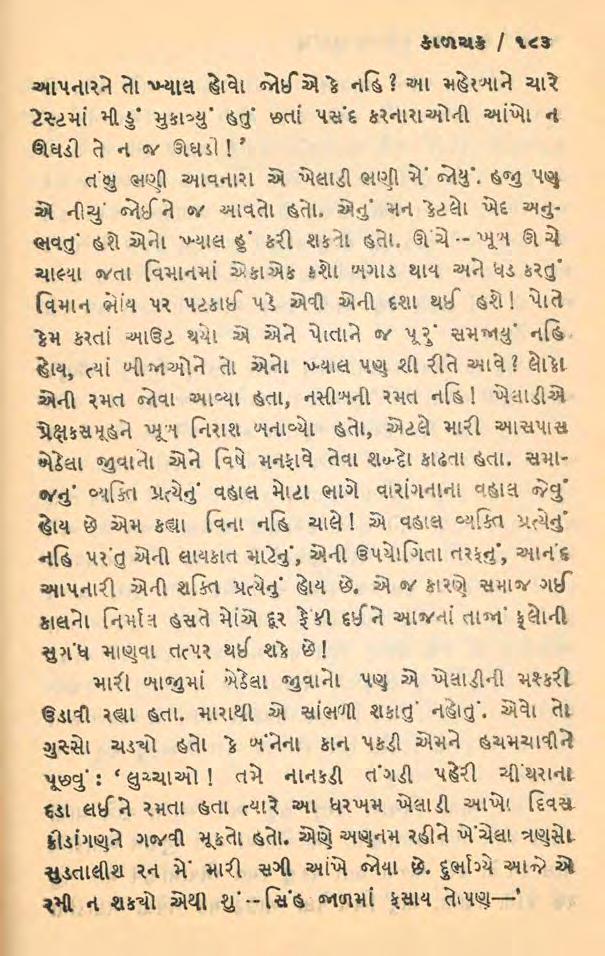 કાળચક્ર / ૧૮૩
આપનારને તો ખ્યાલ હોવો જોઈએ કે નહિ? આ મહેરબાને ચારે
ટેસ્ટમાં મીડું મુકાવ્યું હતું છતાં પસંદ કરનારાઓની આંખો ન
ઊઘડી તે ન જ ઊઘડી!’
તંબુ ભણી આવનારા એ ખેલાડી ભણી મેં જોયું. હજુ પણ
એ નીચું જોઈને જ આવતો હતો. એનું મન કેટલો ખેદ અનુ-
ભવતું હશે એનો ખ્યાલ હું કરી શકતો હતો. ઊંચે -- ખૂબ ઊંચે
ચાલ્યા જતા વિમાનમાં એકાએક કશો બગાડ થાય અને ધડ કરતું
વિમાન ભોંય પર પટકાઈ પડે એવી એની દશા થઈ હશે! પોતે
કેમ કરતાં આઉટ થયો એ એને પોતાને જ પૂરું સમજાયું નહિ
હોય, ત્યાં બીજાઓને તો એનો ખ્યાલ પણ શી રીતે આવે? લોકો
એની રમત જોવા આવ્યા હતા, નસીબની રમત નહિ! ખેલાડીએ
પ્રેક્ષકસમૂહને ખૂબ નિરાશ બનાવ્યો હતો, એટલે મારી આસપાસ
બેઠેલા જુવાનો એને વિષે મનફાવે તેવા શબ્દો કાઢતા હતા. સમા-
જનું વ્યક્તિ પ્રત્યેનું વહાલ મોટા ભાગે વારાંગનાના વહાલ જેવું
હોય છે એમ કહ્યા વિના નહિ ચાલે! એ વહાલ વ્યક્તિ પ્રત્યેનું
નહિ પરંતુ એની લાયકાત માટેનું, એની ઉપયોગિતા તરફનું, આનંદ
આપનારી એની શક્તિ પ્રત્યેનું હોય છે. એ જ કારણે સમાજ ગઈ
કાલનો નિર્માલ્ય હસતે મોંએ દૂર ફેંકી દઈને આજનાં તાજાં ફૂલોની
સુગંધ માણવા તત્પર થઈ શકે છે!
મારી બાજુમાં બેઠેલા જુવાનો પણ એ ખેલાડીની મશ્કરી
ઉડાવી રહ્યા હતા. મારાથી એ સાંભળી શકાતું નહોતું. એવો તો
ગુસ્સો ચડ્યો હતો કે બંનેના કાન પકડી એમને હચમચાવીને
પૂછવું : ‘લુચ્ચાઓ! તમે નાનકડી તંગડી પહેરી ચીંથરાના
દડા લઈને રમતા હતા ત્યારે આ ધરખમ ખેલાડી આખો દિવસ
ક્રીડાંગણને ગજવી મૂકતો હતો. એણે અણનમ રહીને ખેંચેલા ત્રણસો
સુડતાલીશ રન મેં મારી સગી આંખે જોયા છે. દુર્ભાગ્યે આજે એ
રમી ન શક્યો એથી શું -- સિંહ જાળમાં ફસાય તોપણ—’